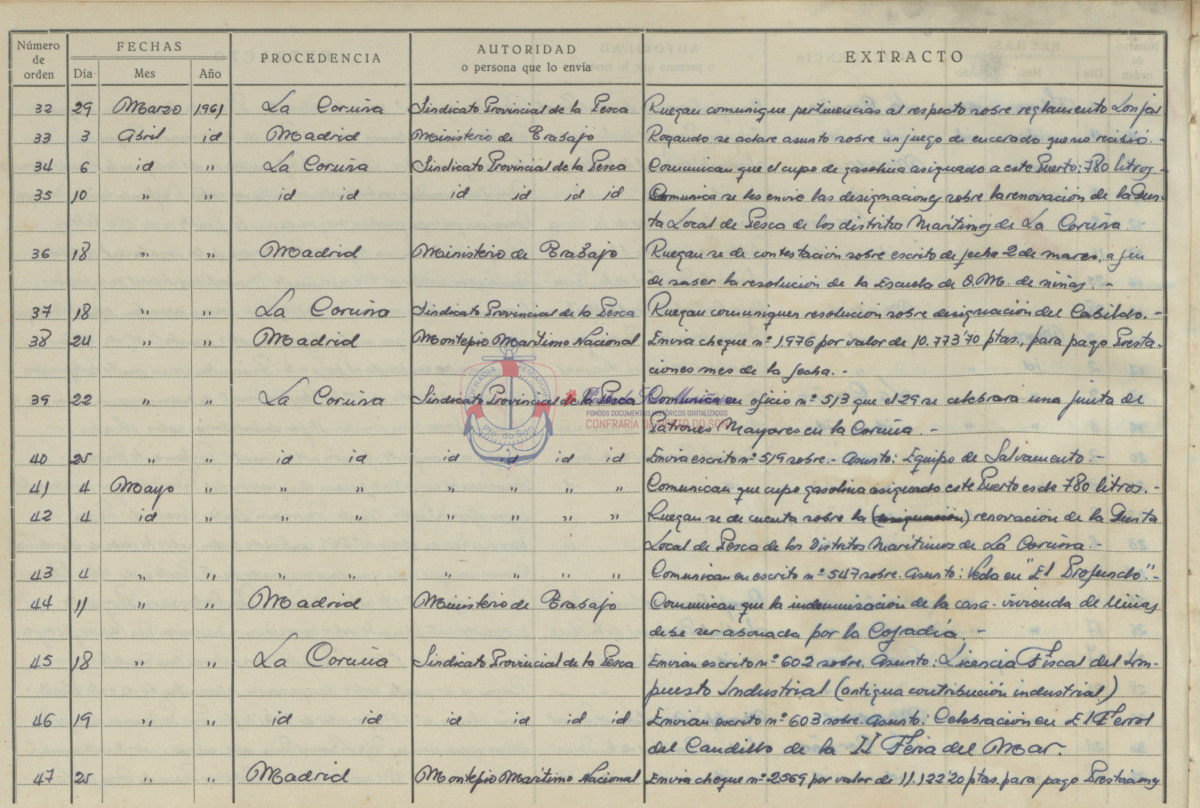 Número de orden FECHAS Día Mes Año PROCEDENCIA AUTORIDAD o persona que lo envía EXTRACTO
32 29 Marzo 1961 La Coruña Sindicato Provincial de la Pesca Ruegan comunique pertinencias al respecto sobre reglamento Lonjas
33 3 Abril id Madrid Ministerio de Trabajo Rogando se aclare asunto sobre un juego de encerado que no recibió. -
34 6 id " La Coruña Sindicato Provincial de la Pesca Comunican que el cupo de gasolina asignado a este Puerto: 780 litros. -
35 10 " " id id id id id id Comunica se les envie las designaciones sobre la renovación de la Jun-
ta Local de Pesca de los distritos Marítimos de La Coruña
36 18 " " Madrid Ministerio de Trabajo Ruegan se de contestación sobre escrito de fecha 2 de marzo, a fin
de saber la resolución de la Escuela de O.M. de niñas. -
37 18 " " La Coruña Sindicato Provincial de la Pesca Ruegan comuniquen resolución sobre designación del Cabildo. -
38 24 " " Madrid Montepio Marítimo Nacional Envia cheque nº 1.976 por valor de 10.773'70 ptas., para pago Presta-
ciones mes de la fecha. -
39 22 " " La Coruña Sindicato Provincial de la Pesca Comunica en oficio nº 513 que el 29 se celebrara una junta de
Patrones Mayores en la Coruña -
40 25 " " id id id id id id Envia escrito nº 519 sobre. - Asunto: Equipo de Salvamento -
41 4 Mayo " " " " " " " Comunican que cupo gasolina asignado este Puerto es de 780 litros. -
42 4 id " " " " " " " Ruegan se de cuenta sobre la (asignación) renovación de la Junta
Local de Pesca de los Distritos Marítimos de La Coruña -
43 4 " " " " " " " " Comunican en escrito nº 547 sobre. Asunto: Veda en "El Profundo". -
44 11 " " Madrid Ministerio de Trabajo Comunican que la indemnización de la casa-vivienda de Niñas
debe ser abonada por la Cofradía. -
45 18 " " La Coruña Sindicato Provincial de la Pesca Envian escrito nº 602 sobre. Asunto: Licencia Fiscal del Im-
puesto Industrial (antigua contribución industrial)
46 19 " " id id id id id id Envian escrito nº 603 sobre. Asunto: Celebración en El Ferrol
del Caudillo de la II Feria del Mar.
47 25 " " Madrid Montepio Marítimo Nacional Envia cheque nº 2569 por valor de 11.122'20 ptas. para pago Prestaciones
FONDOS DOCUMENTAIS HISTÓRICOS DIXITALIZADOS
CONFRARÍA DE PORTO DO SON